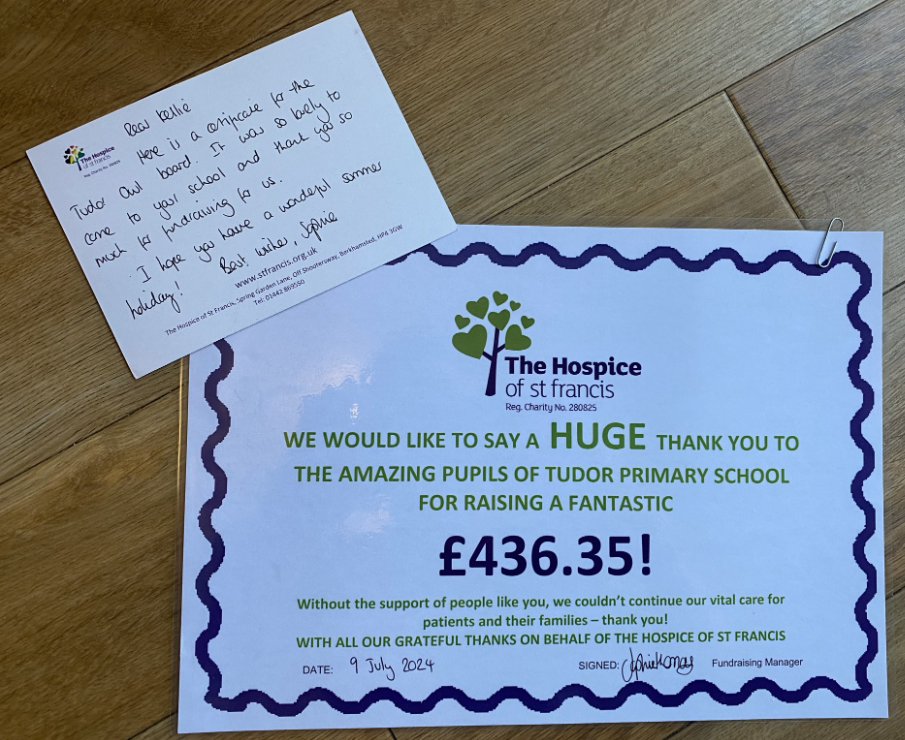 Dear Kellie
The Hospice
of st francis
Reg. Charity No. 280825
Here is a certificate for the
Tudor Owl board. It was so lovely to
come to your school and thank you so
much for fundraising for us.
I hope you have a wonderful summer
holiday!
Best wishes, Sophie
www.stfrancis.org.uk
The Hospice of St Francis, Spring Garden Lane, Off Shootersway, Berkhamsted, HP4 3GW
Tel: 01442 869550
The Hospice
of st francis
Reg. Charity No. 280825
WE WOULD LIKE TO SAY A HUGE THANK YOU TO
THE AMAZING PUPILS OF TUDOR PRIMARY SCHOOL
FOR RAISING A FANTASTIC
£436.35!
Without the support of people like you, we couldn't continue our vital care for
patients and their families – thank you!
WITH ALL OUR GRATEFUL THANKS ON BEHALF OF THE HOSPICE OF ST FRANCIS
DATE: 9 July 2024 SIGNED: Fundraising Manager